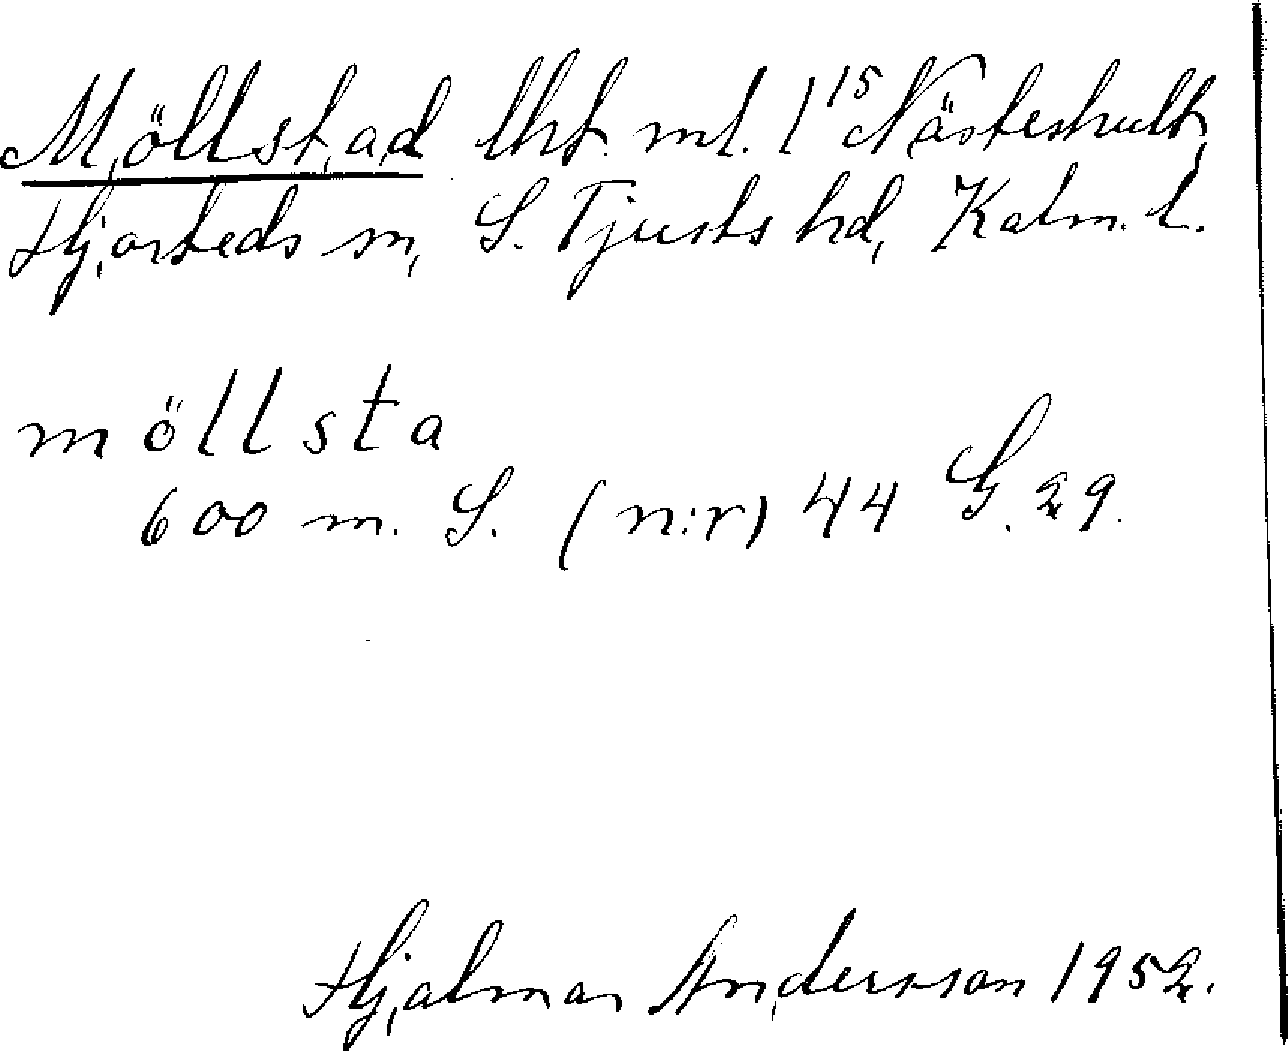 Möllstad lht. ml. 1¹⁵ Nästeshult,
Hjorteds sn, S. Tjusts hd, Kalm. l.
möllsta
600 m. S. (n:r) 44 G. 29.
Hjalmar Andersson 1952.